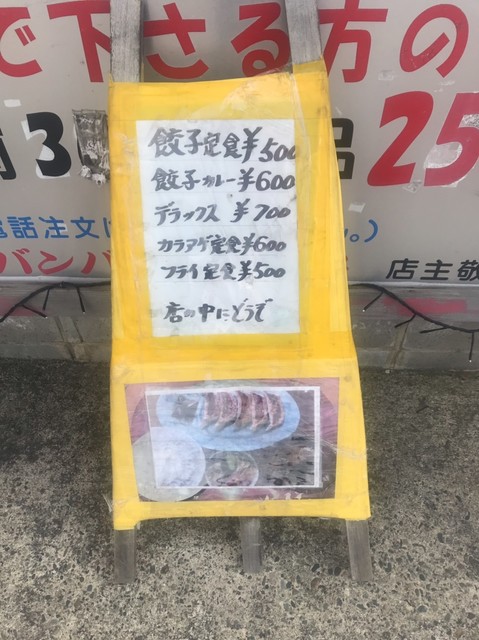 で下さる方の
3
品
25
電話注文は
。)
バンバ
店主敬
餃子定食¥500
餃子カレー¥600
デラックス ¥700
カラアゲ定食¥600
フライ定食¥500
店の中にどうで